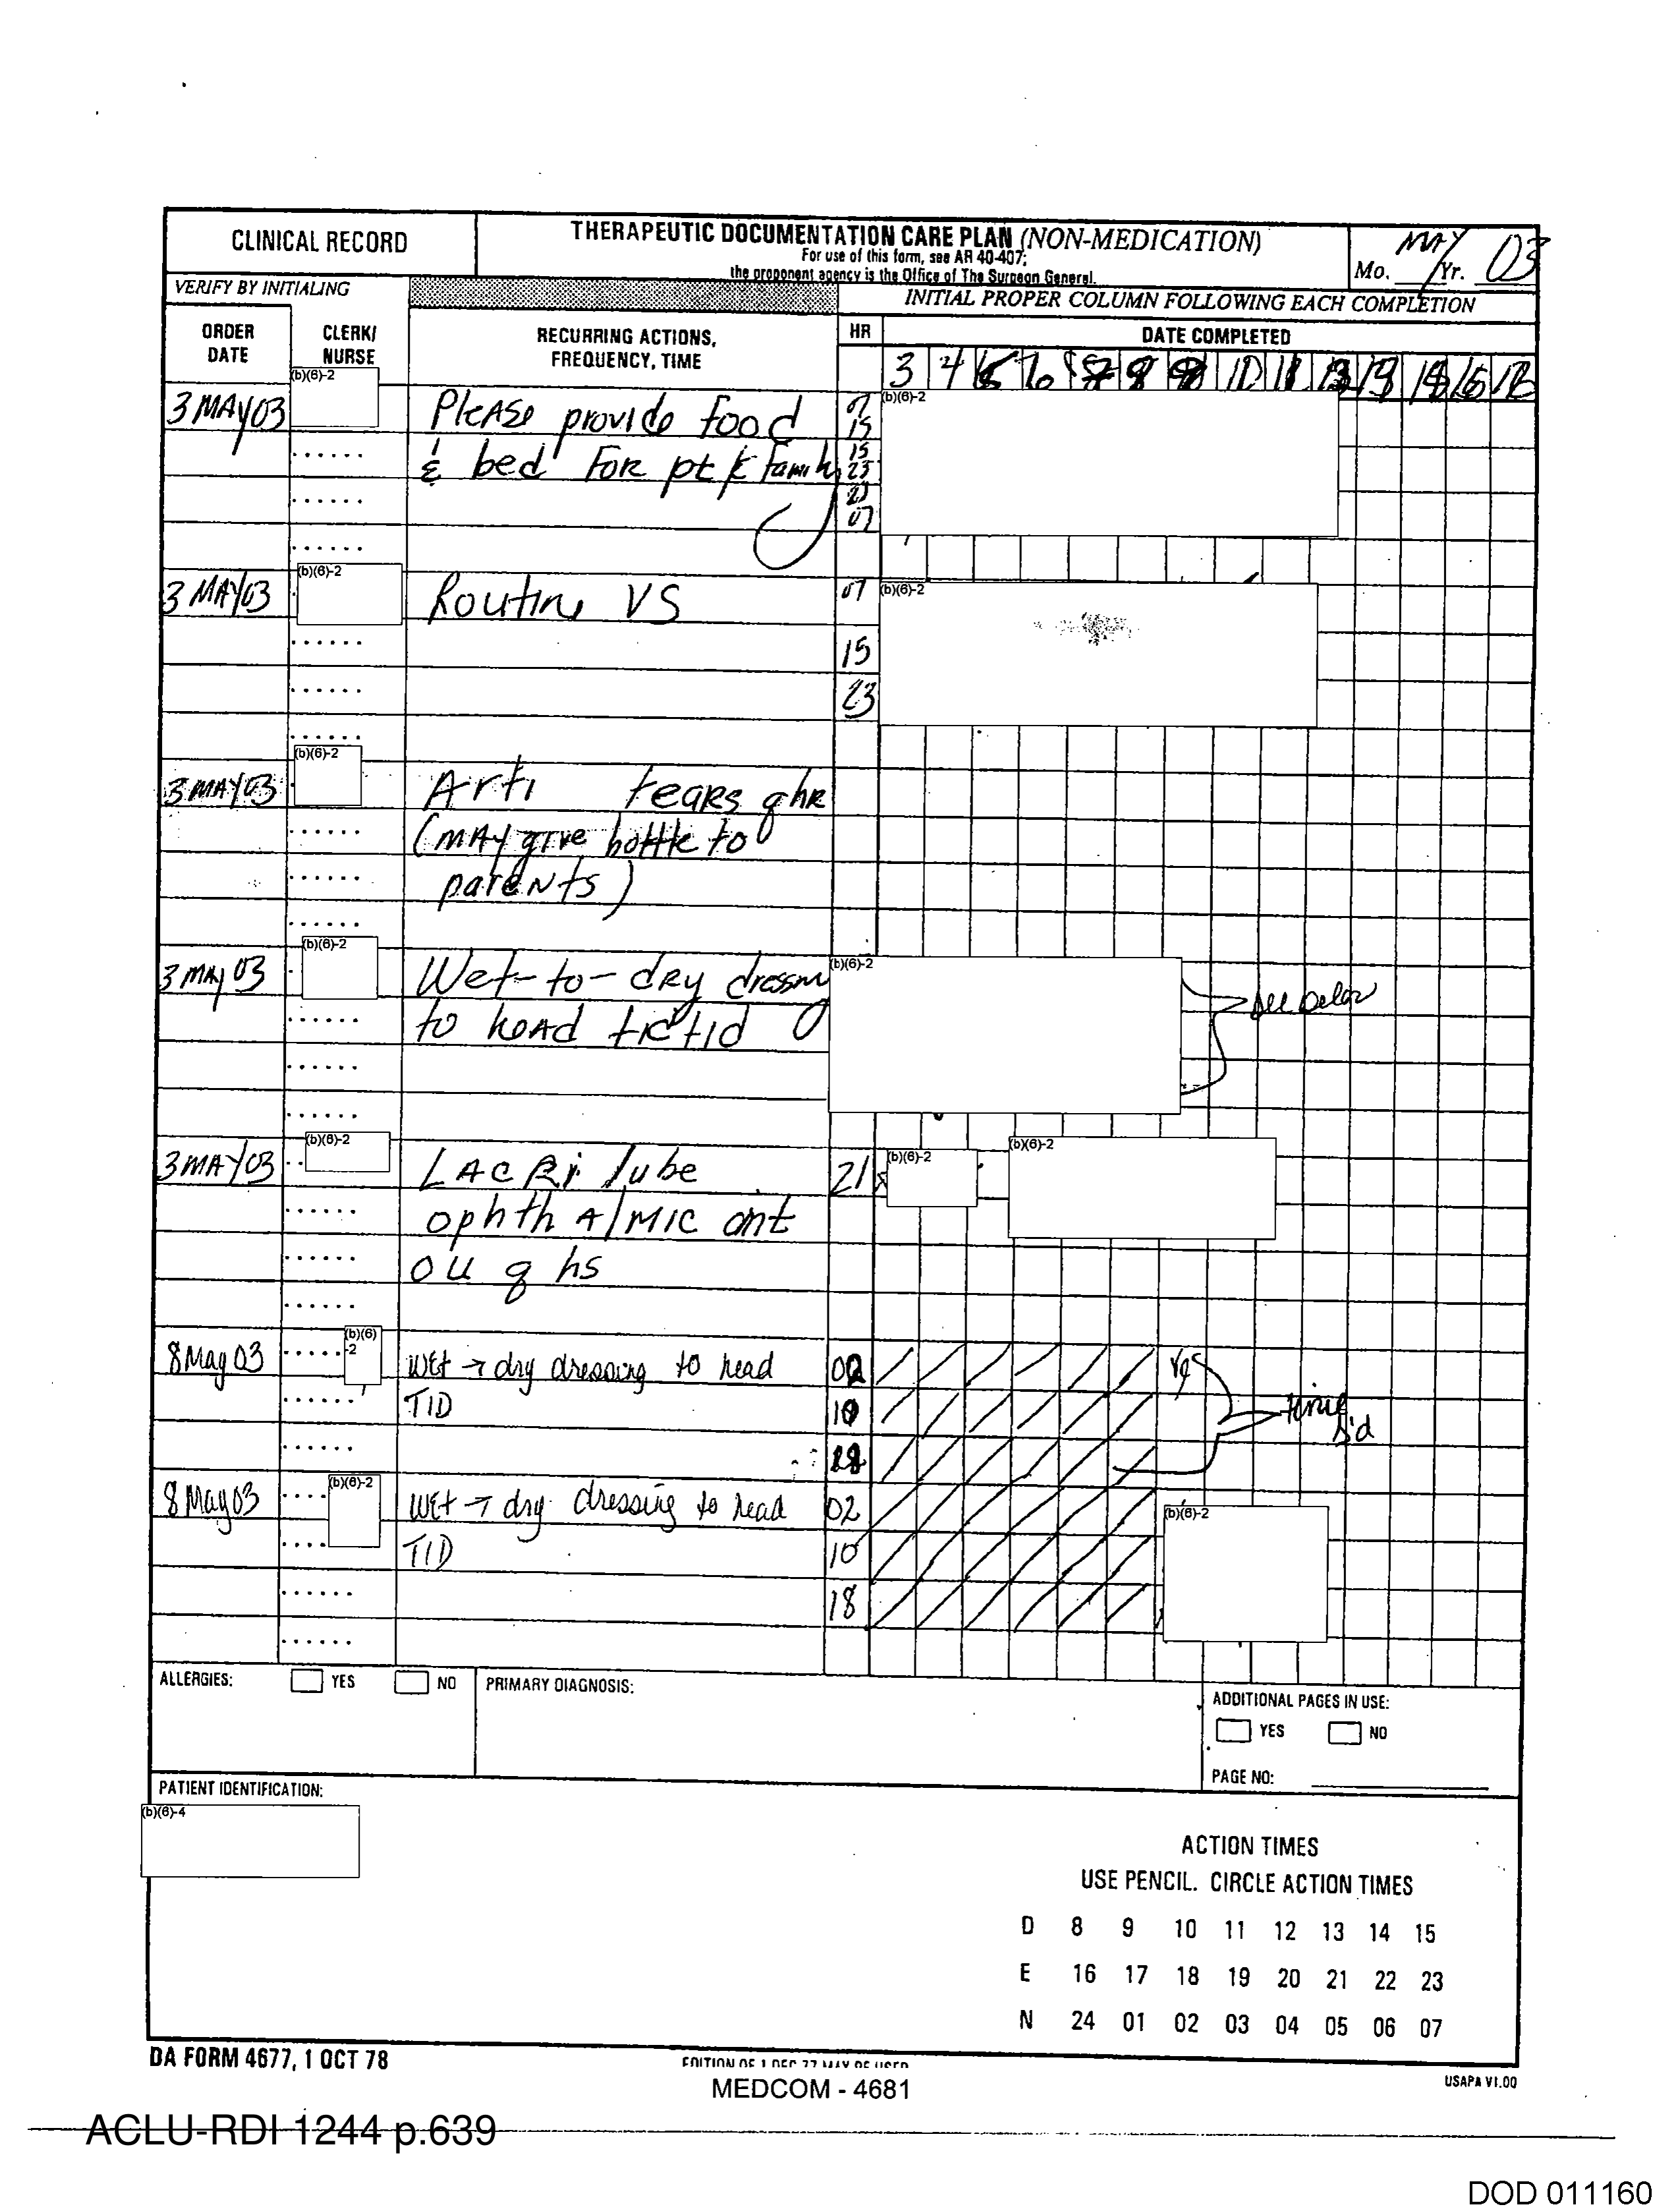 CLINICAL RECORD
THERAPEUTIC DOCUMENTATION CARE PLAN (NON-MEDICATION)
For use of this form, see AR 40-407;
the proponent agency is the Office of The Surgeon General.
Mo. MAY Yr. 03
VERIFY BY INITIALING
INITIAL PROPER COLUMN FOLLOWING EACH COMPLETION
ORDER DATE
CLERK/ NURSE
RECURRING ACTIONS, FREQUENCY, TIME
HR
DATE COMPLETED
3 4 6 10 11
(b)(6)-2
3 MAY 03
PLEASE provide food 07
15
(b)(6)-2
& bed FOR pt & family 15
23
23
07
3 MAY 03
(b)(6)-2
Routine VS
07
(b)(6)-2
15
23
3 MAY 03
(b)(6)-2
Arti tears q hr
(MAY give bottle to
parents)
3 MAY 03
(b)(6)-2
Wet-to-dry
(b)(6)-2
see below
to head tid
3 MAY 03
(b)(6)-2
LACRi lube
21
(b)(6)-2
(b)(6)-2
ophth A/MIC ont
OU q hs
8 May 03
(b)(6)-2
Wet → dry dressing to head
02
TID
10
time
18
8 May 03
(b)(6)-2
Wet → dry dressing to head
02
(b)(6)-2
TID
10
18
ALLERGIES: YES NO
PRIMARY DIAGNOSIS:
ADDITIONAL PAGES IN USE:
YES NO
PAGE NO:
PATIENT IDENTIFICATION:
(b)(6)-4
ACTION TIMES
USE PENCIL. CIRCLE ACTION TIMES
D 8 9 10 11 12 13 14 15
E 16 17 18 19 20 21 22 23
N 24 01 02 03 04 05 06 07
DA FORM 4677, 1 OCT 78
EDITION OF 1 DEC 77 MAY BE USED
USAPA V1.00
MEDCOM - 4681
ACLU-RDI 1244 p.639
DOD 011160